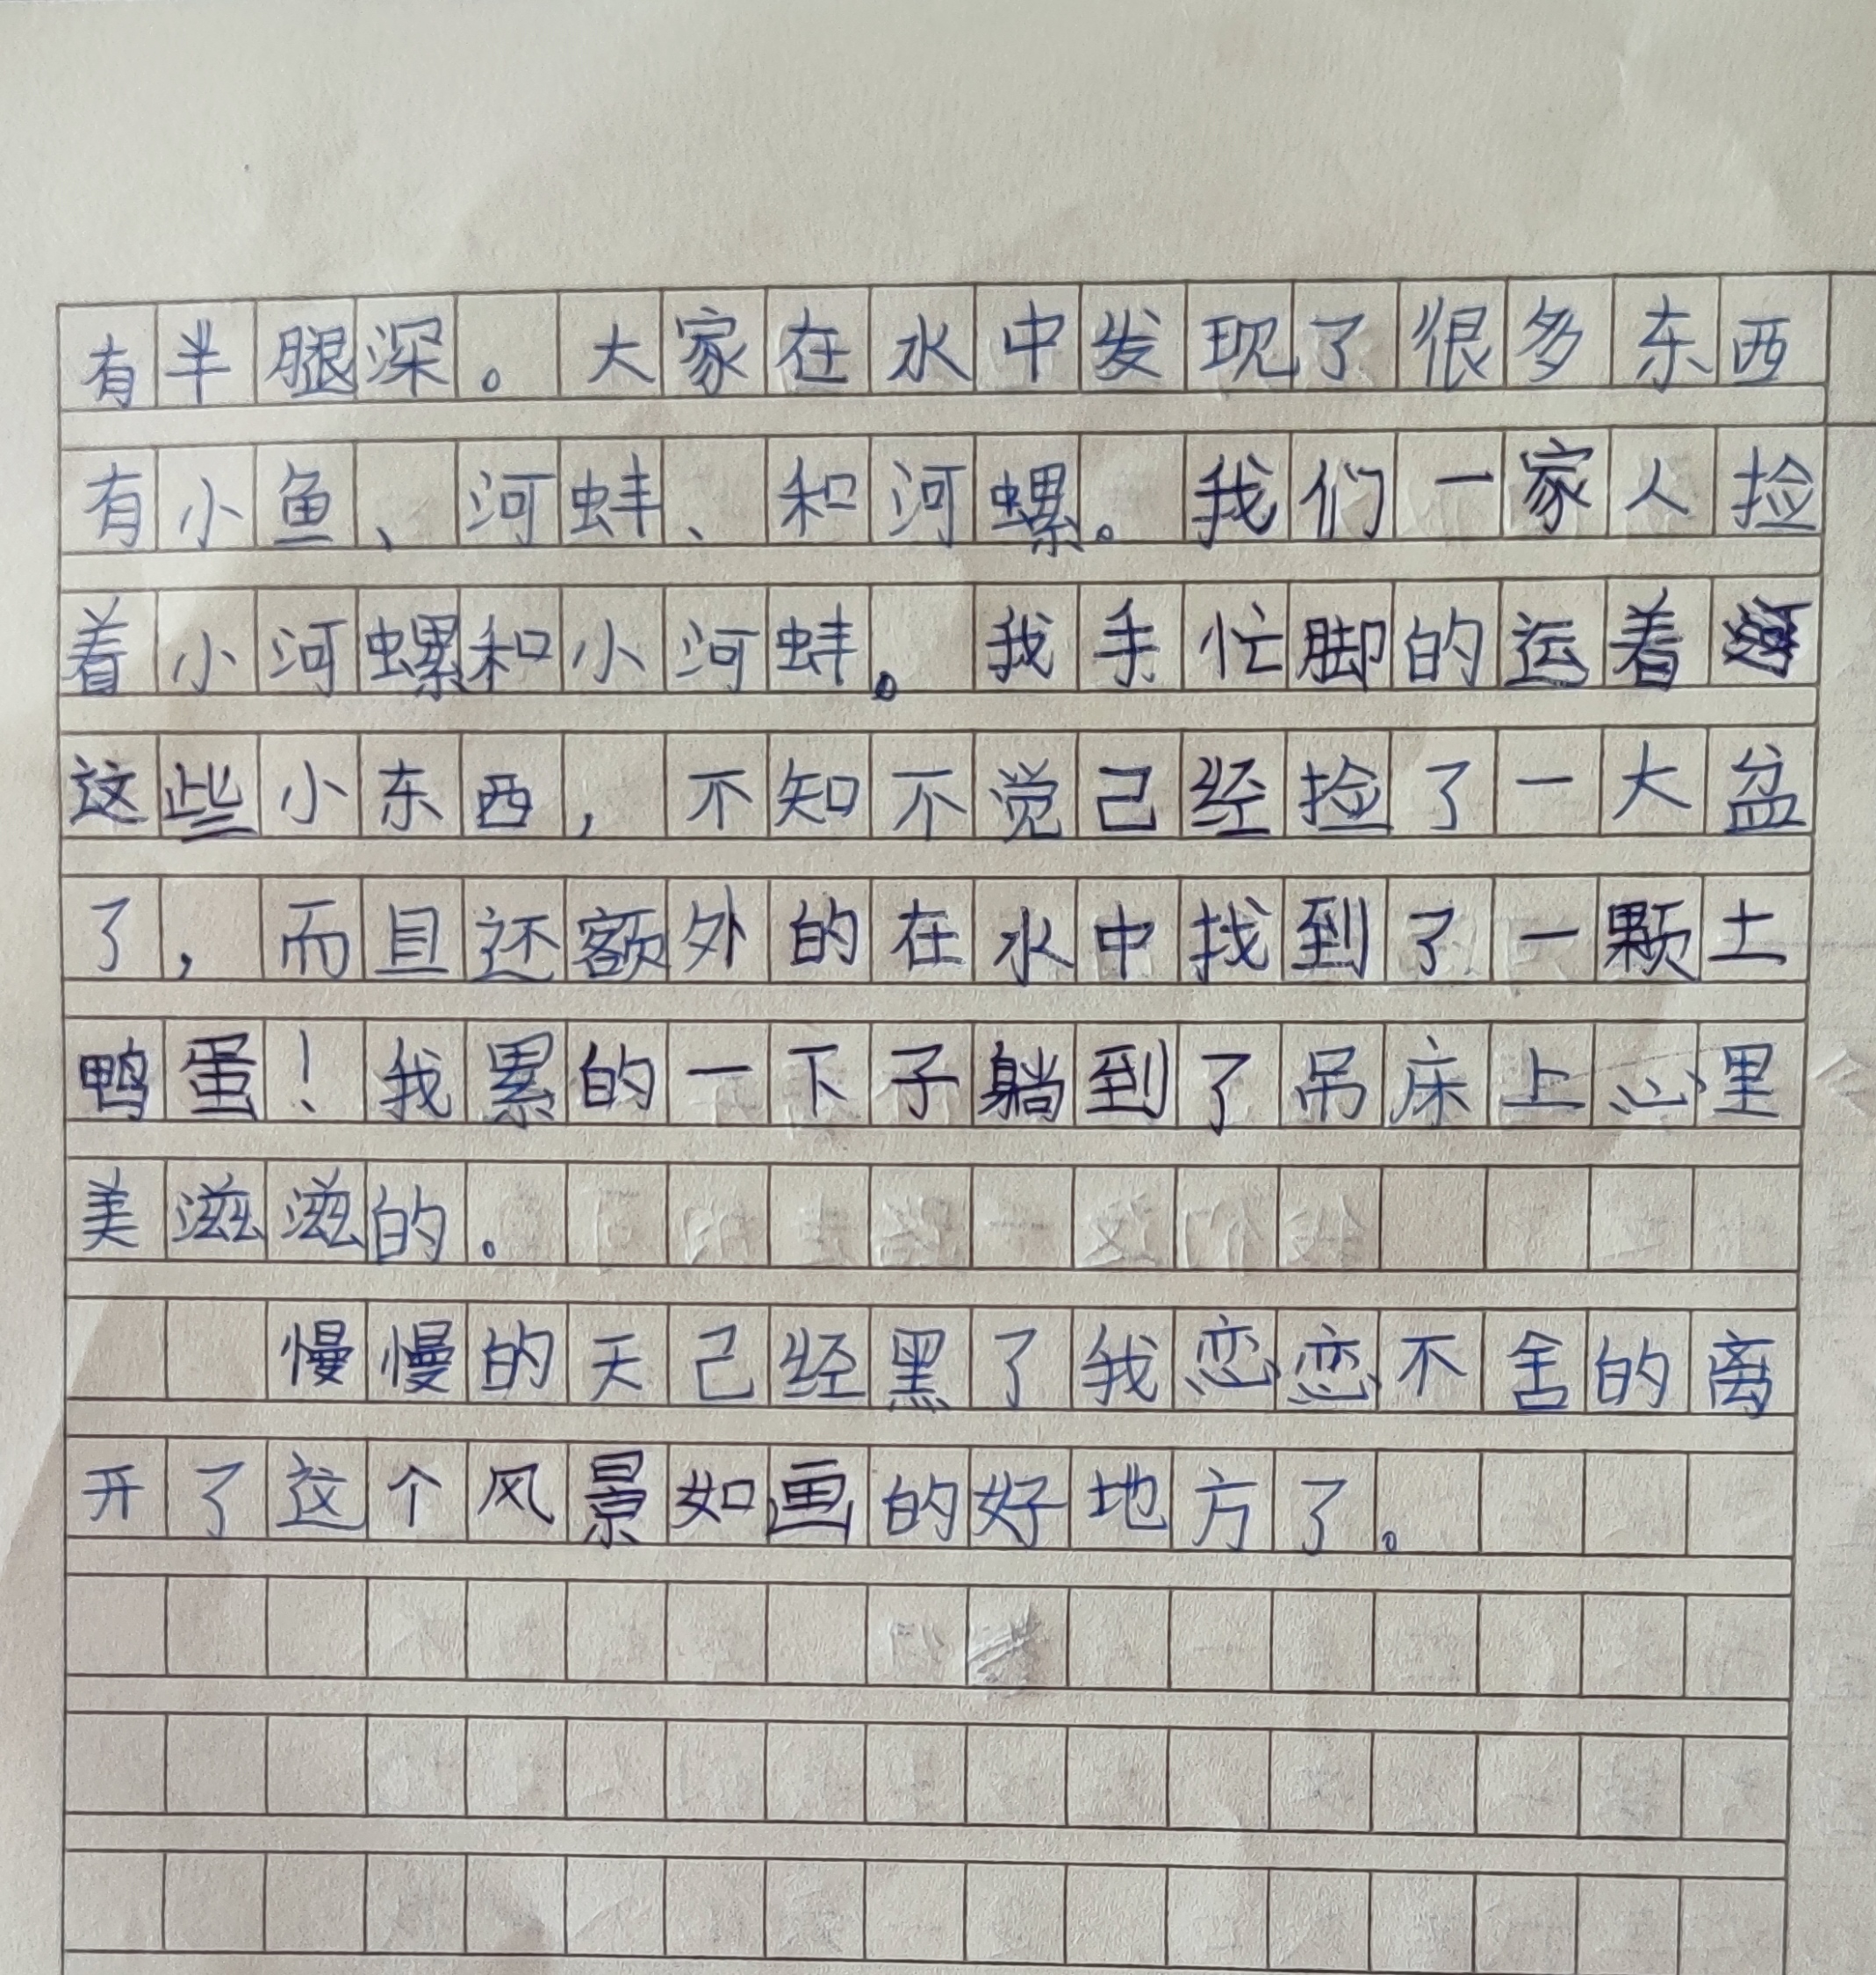 有半腿深。大家在水中发现了很多东西
有小鱼、河蚌、和河螺。我们一家人捡
着小河螺和小河蚌。我手忙脚的运着
这些小东西，不知不觉己经捡了一大盆
了，而且还额外的在水中找到了一颗土
鸭蛋！我累的一下子躺到了吊床上心里
美滋滋的。
慢慢的天己经黑了我恋恋不舍的离
开了这个风景如画的好地方了。